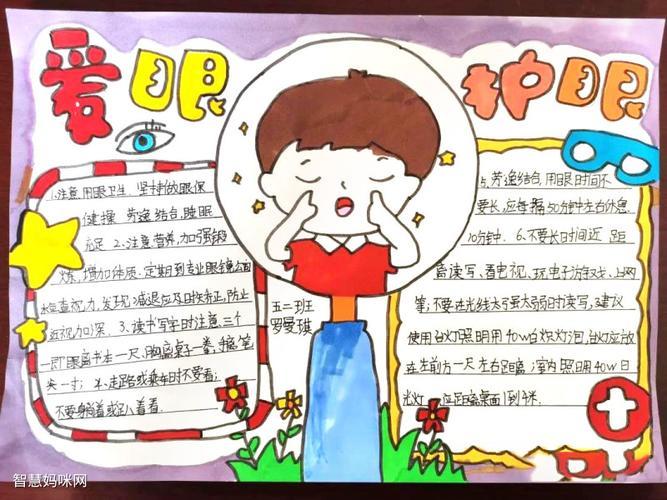 爱眼
护眼
1.注意用眼卫生、坚持做眼保
健操 劳逸结合,睡眠
充足 2、注意营养,加强锻
炼,增加体质、定期到专业眼镜公司
检查视力,发现减退应及时矫正,防止
近视加深。3、读书写字时注意三个
一,即眼离书本一尺,胸离桌子一拳,手离笔
尖一寸; 4、走路或乘车时不要看;
不要躺着或趴着看.
五二班
罗曼琪
5、劳逸结合,用眼时间不
要长,应每隔50分钟左右休息
10分钟. 6、不要长时间近 距
离读写、看电视、玩电子游戏、上网
等;不要在光线太强太弱时读写,建议
使用台灯照明用40w白炽灯泡,台灯应放
在左前方一尺左右距离;室内照明用40w日
光灯 应距离桌面1到 米.
智慧妈咪网